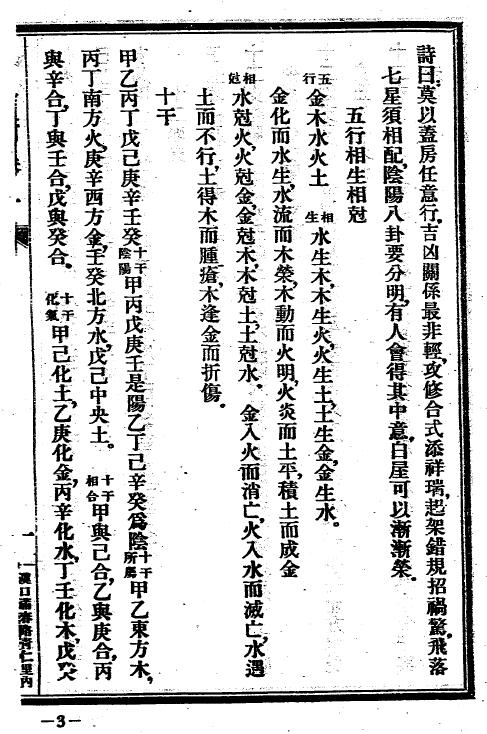 詩曰,莫以蓋房任意行,吉凶關係最非輕,攻修合式添祥瑞,起架錯規招禍驚,飛落
七星須相配,陰陽八卦要分明,有人會得其中意,白屋可以漸漸榮。
五行相生相尅
五行 金木水火土 相生 水生木,木生火,火生土,土生金,金生水。
金化而水生,水流而木榮,木動而火明,火炎而土平,積土而成金
相尅 水尅火,火尅金,金尅木,木尅土,土尅水。 金入火而消亡,火入水而滅亡,水遇
土而不行,土得木而腫瘡,木逢金而折傷。
十干
甲乙丙丁戊己庚辛壬癸 十干陰陽 甲丙戊庚壬是陽,乙丁己辛癸爲陰, 十干所屬 甲乙東方木,
丙丁南方火,庚辛西方金,壬癸北方水,戊己中央土。 十干相合 甲與己合,乙與庚合,丙
與辛合,丁與壬合,戊與癸合。 十干化氣 甲己化土,乙庚化金,丙辛化水,丁壬化木,戊癸
一
—3—